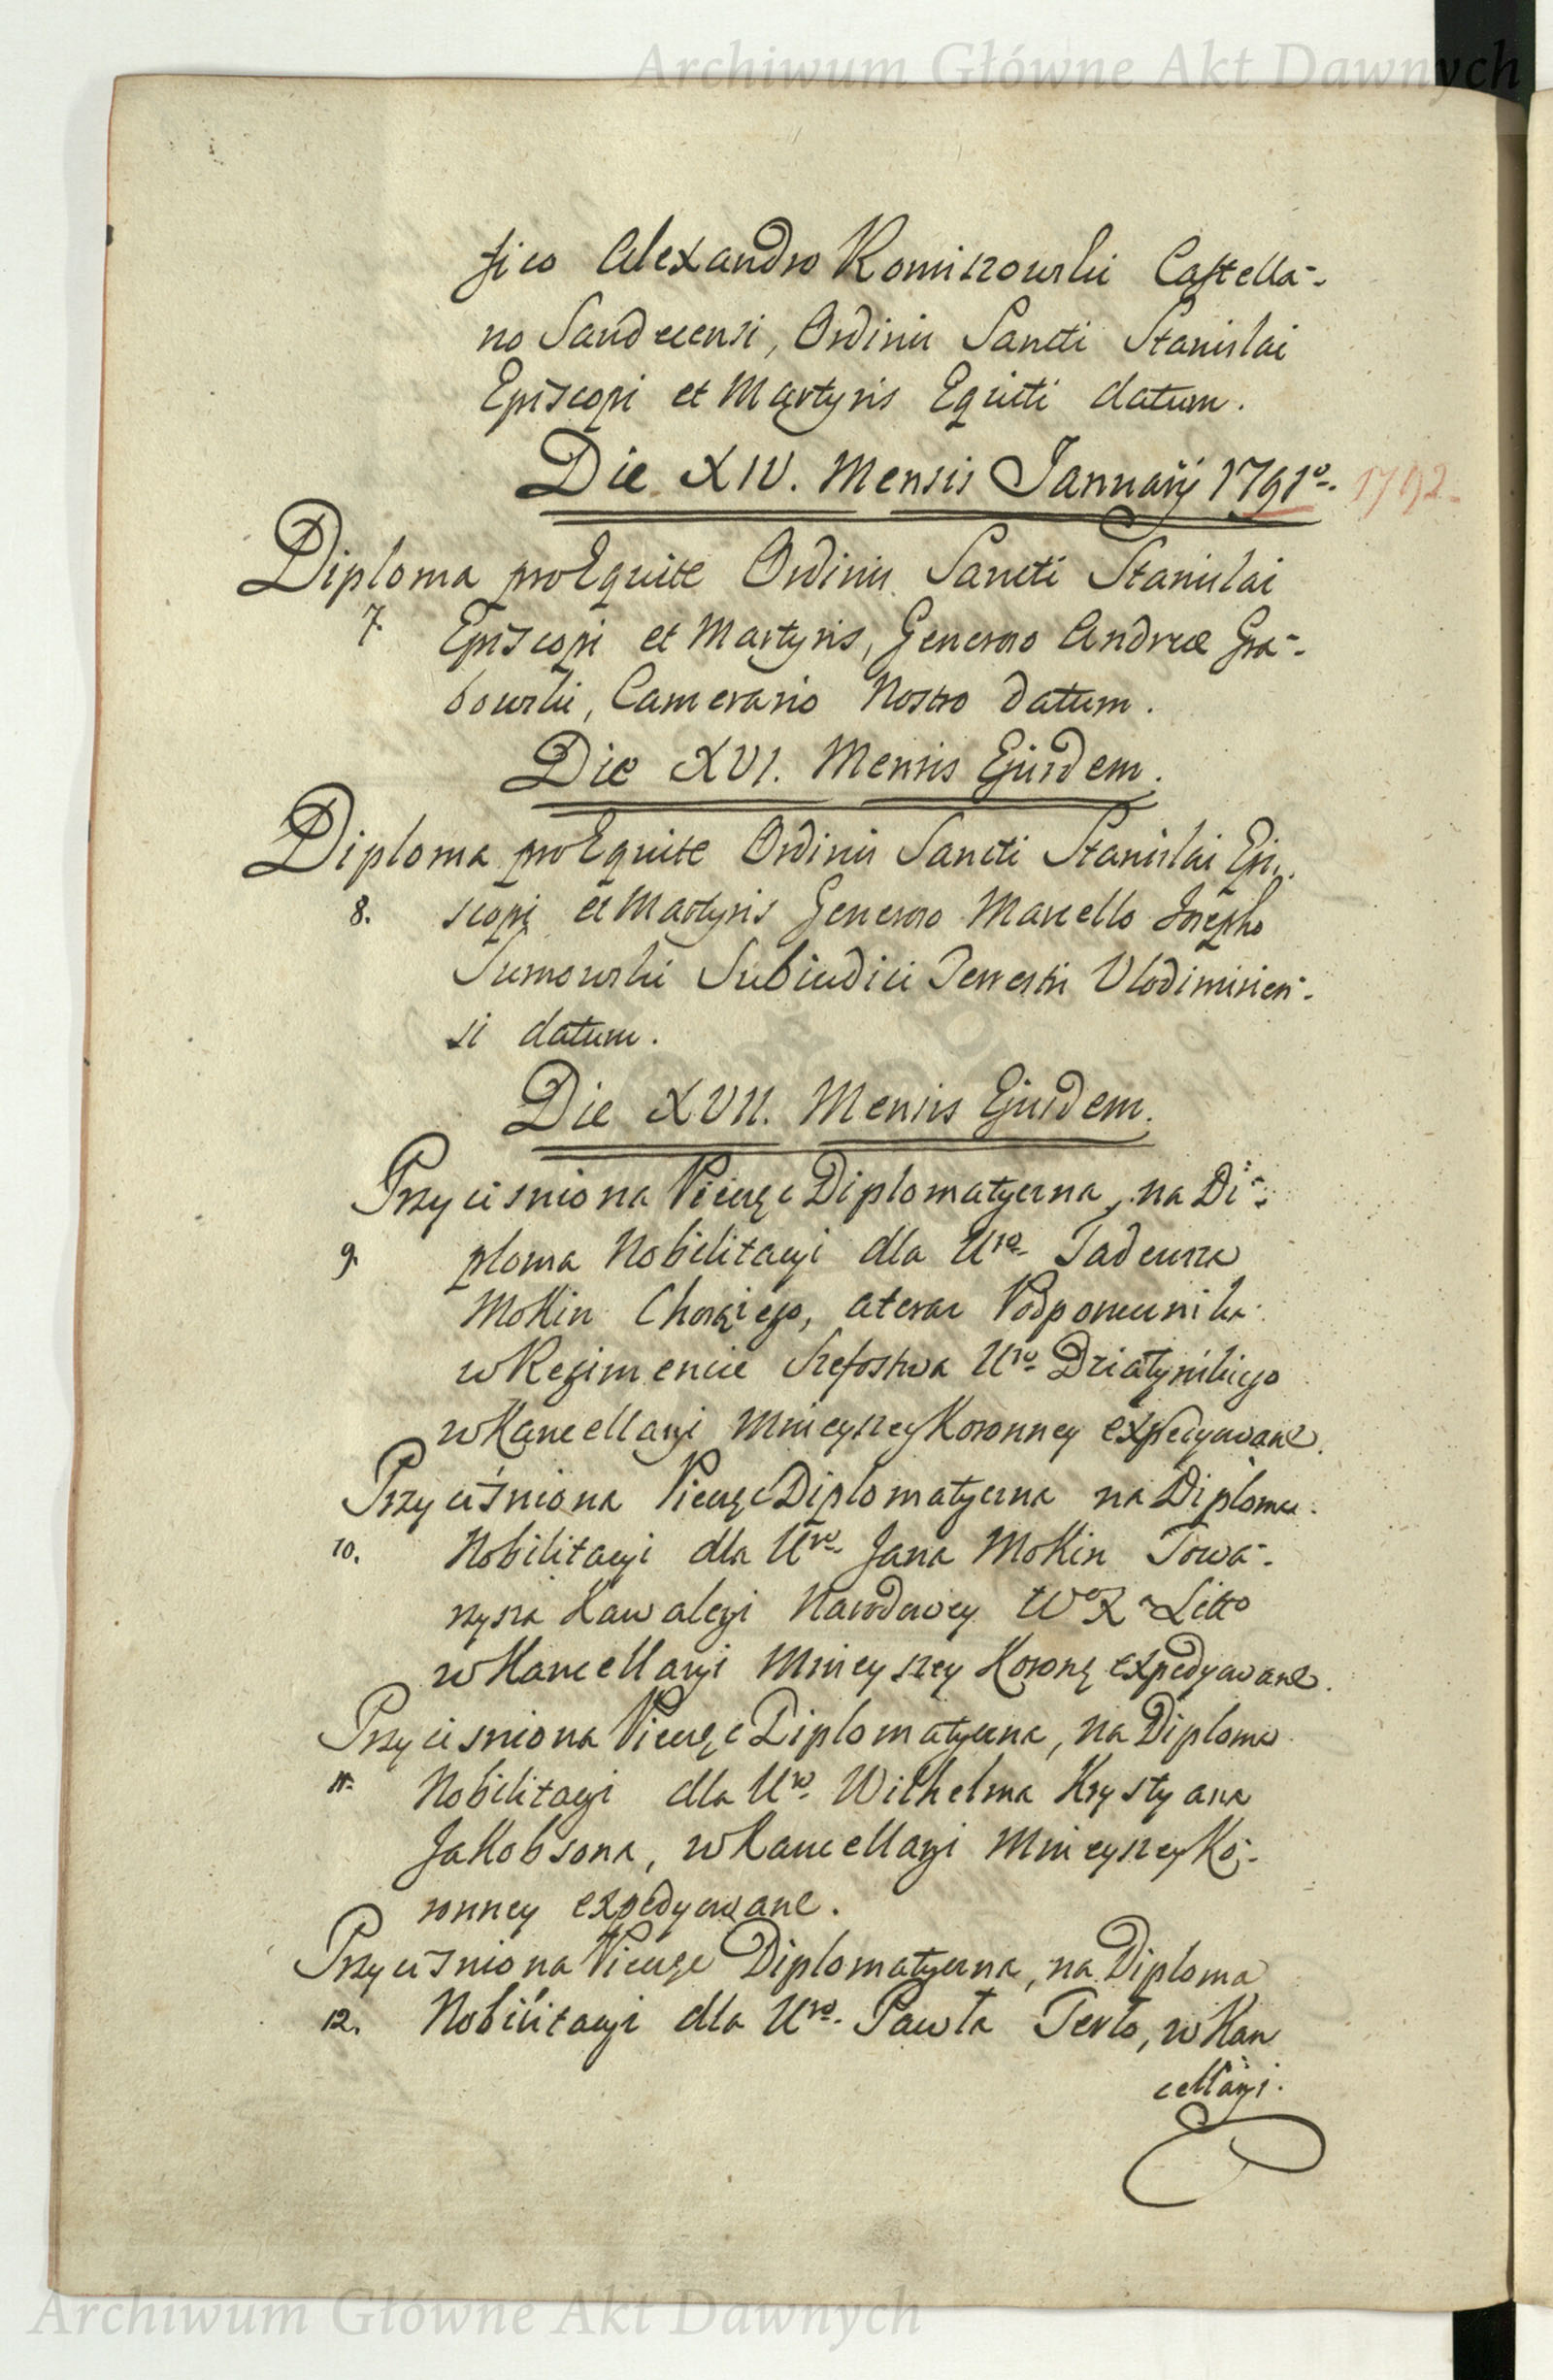 Archiwum Główne Akt Dawnych
fico Alexandro Romiszowski Castella-
no Sandecensi, Ordinis Sancti Stanislai
Episcopi et Martyris Equiti datum.
Die XIV. Mensis Januarij 1791o. 1792.
Diploma pro Equite Ordinis Sancti Stanislai
7. Episcopi et Martyris, Generoso Andreæ Gra-
bowski, Camerario Nostro datum.
Die XVI. Mensis Ejusdem.
Diploma pro Equite Ordinis Sancti Stanislai Epi-
8. scopi et Martyris Generoso Marcello Josepho
Sumowski Subiudici Terrestri Vlodimirien-
si datum.
Die XVII. Mensis Ejusdem.
Przyciśniona Pieczęć Diplomatyczna, na Di-
9. ploma Nobilitacyi dla Uro. Tadeusza
Mokin Chorążego, a teraz Podporucznika
w Regimencie Szefostwa Uro Działyńskiego
w Kancellaryi Mnieyszey Koronney expedyowane.
Przyciśniona Pieczęć Diplomatyczna na Diploma
10. Nobilitacyi dla Uro. Jana Mokin Towa-
rzysza Kawaleryi Narodowey WoXa Litto
w Kancellaryi Mnieyszey Koronę expedyowane.
Przyciśniona Pieczęć Diplomatyczna, na Diploma
11. Nobilitacyi dla Uro. Wilhelma Krystyana
Jakobsona, w Kancellaryi Mnieyszey Ko-
ronney expedyowane.
Przyciśniona Pieczęć Diplomatyczna, na Diploma
12. Nobilitacyi dla Uro. Pawła Terlo, w Kan
cellaryi.
Archiwum Główne Akt Dawnych